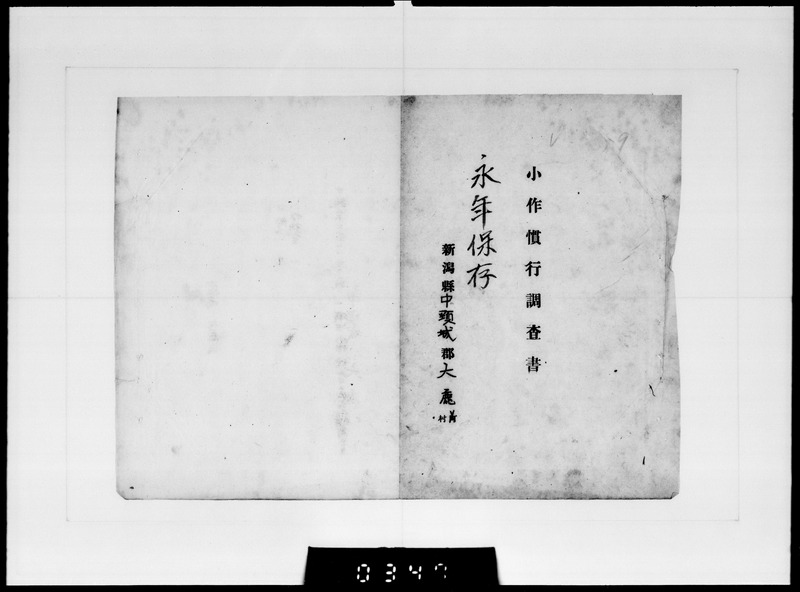 小作慣行調査書
永年保存
新潟縣中頸城郡大鹿村
0347